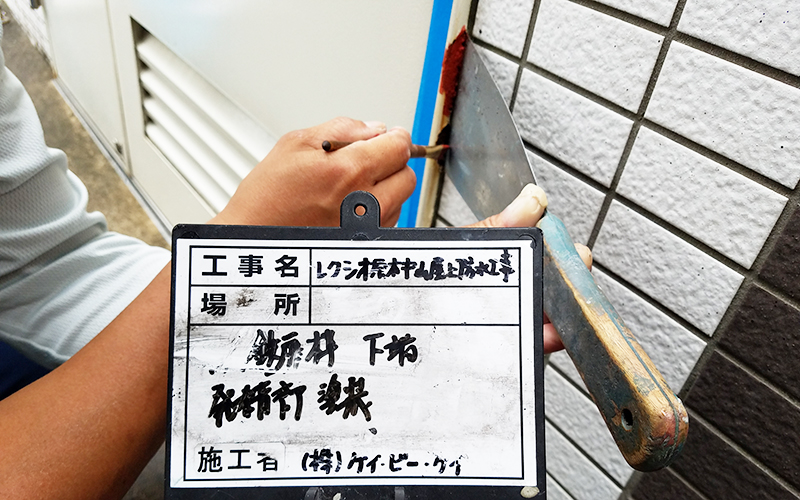 工事名 レクシオ橋本中山屋上防水工事
場所
鉄扉枠 下端
発錆部 塗装
施工者 (株)ケイ・ビー・ケイ